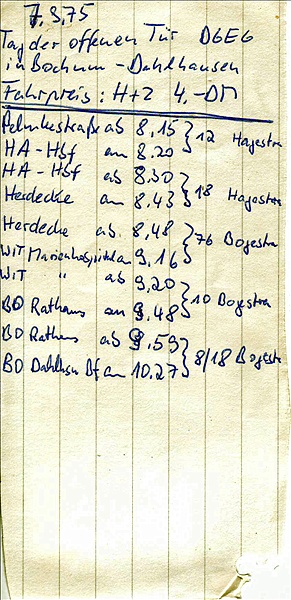 7.9.75
Tag der offenen Tür DGEG
in Bochum-Dahlhausen
Fahrpreis: H+Z 4,-DM
ab 8.15 } 12 Hagestra
HA-Hbf an 8.20
HA-Hbf ab 8.30 } 18 Hagestra
Herdecke an 8.43
Herdecke ab 8.48 } 76 Bogestra
WIT Marienhospital an 9.16
WIT " ab 9.20 } 10 Bogestra
BO Rathaus an 9.48
BO Rathaus ab 9.59 } 8/18 Bogest
BO Dahlhsn Bf an 10.27